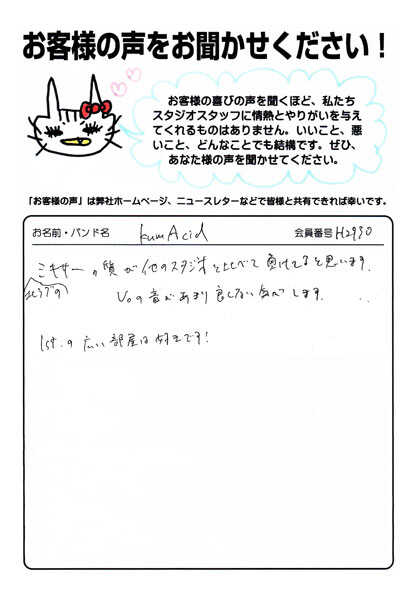 お客様の声をお聞かせください！
お客様の喜びの声を聞くほど、私たち
スタジオスタッフに情熱とやりがいを与え
てくれるものはありません。いいこと、悪
いこと、どんなことでも結構です。ぜひ、
あなた様の声を聞かせてください。
「お客様の声」は弊社ホームページ、ニュースレターなどで皆様と共有できれば幸いです。
お名前・バンド名 kumAcid 会員番号 H2930
ミキサーの質が他のスタジオと比べて負けてると思います。
Voの音があまり良くない気がします。
1st.の広い部屋は好きです！